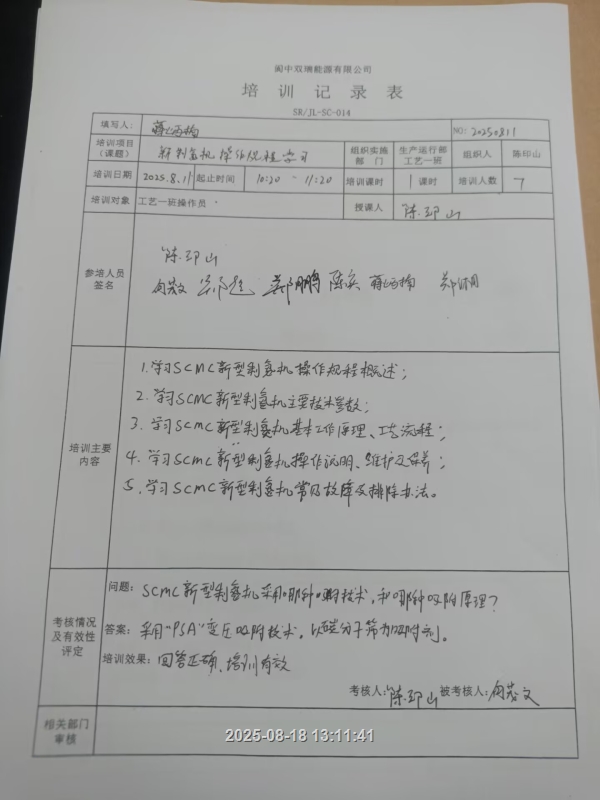 阆中双瑞能源有限公司
培训记录表
SR/JL-SC-014
填写人： NO: 20250811
培训项目（课题） 新制氮机操作规程学习 组织实施部门 生产运行部工艺一班 组织人 陈印山
培训日期 2025.8.11 起止时间 10:20 - 11:20 培训课时 1课时 培训人数 7
培训对象 工艺一班操作员 授课人 陈印山
参培人员签名
陈印山
郑鹏
培训主要内容
1.学习SCMC新型制氮机操作规程概述；
2.学习SCMC新型制氮机主要技术参数；
3.学习SCMC新型制氮机基本工作原理、工艺流程；
4.学习SCMC新型制氮机操作说明、维护及保养；
5.学习SCMC新型制氮机常见故障及排除办法。
考核情况及有效性评定
问题：SCMC新型制氮机采用哪种吸附技术，和哪种吸附原理？
答案：采用“PSA”变压吸附技术，以碳分子筛为吸附剂。
培训效果：回答正确、培训有效
考核人：陈印山 被考核人：
相关部门审核
2025-08-18 13:11:41